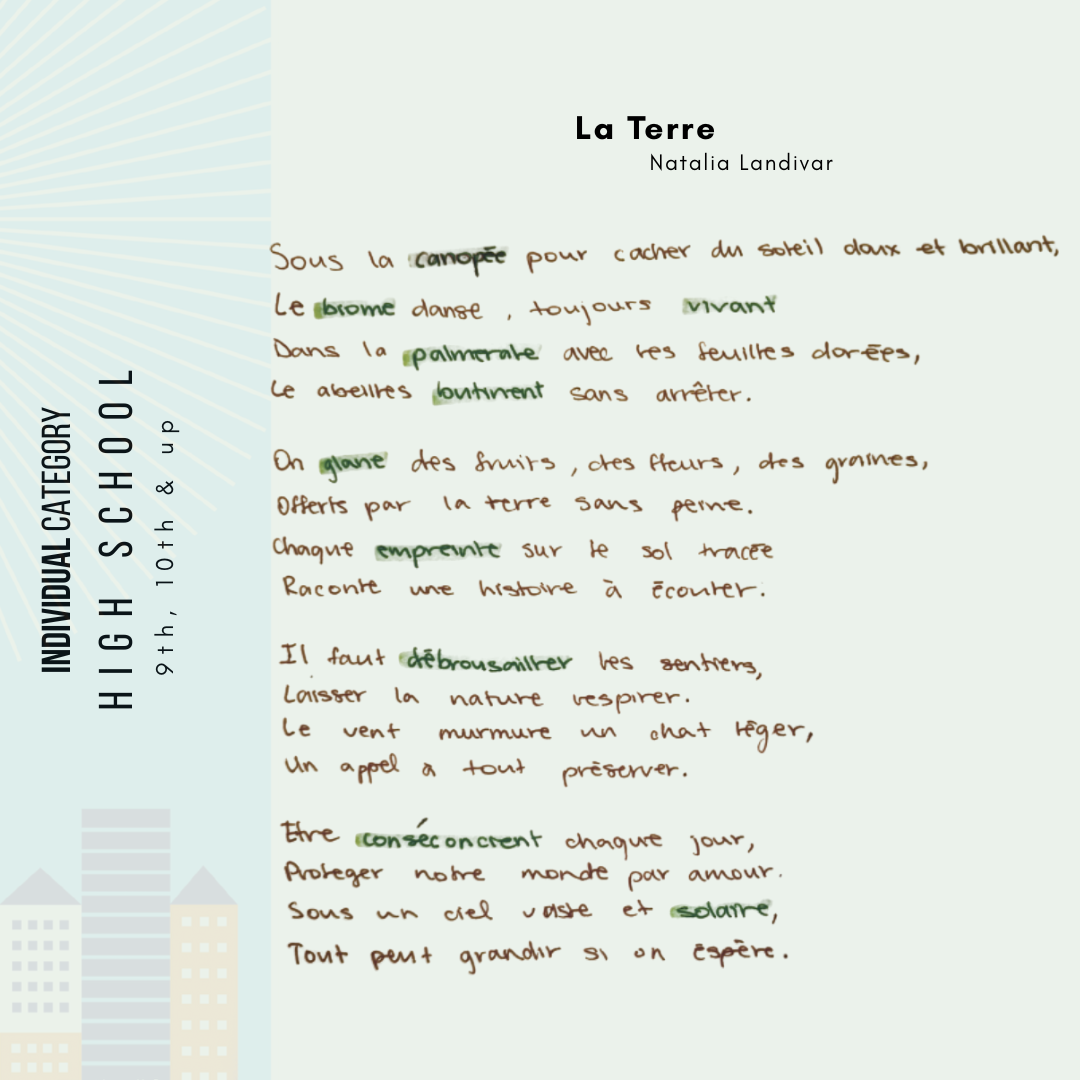 La Terre
Natalia Landivar
Sous la canopée pour cacher du soleil doux et brillant,
Le brome danse , toujours vivant
Dans la palmeraie avec les feuilles dorées,
Le abeilles butinent sans arrêter.
On glane des fruits , des fleurs , des graines,
Offerts par la terre sans peine.
Chaque empreinte sur le sol tracée
Raconte une histoire à écouter.
Il faut débrousailler les sentiers,
Laisser la nature respirer.
Le vent murmure un chat léger,
Un appel à tout préserver.
Etre conséconcient chaque jour,
Proteger notre monde par amour.
Sous un ciel vaste et solaire,
Tout peut grandir si on éspère.
INDIVIDUAL CATEGORY
HIGH SCHOOL
9th, 10th & up